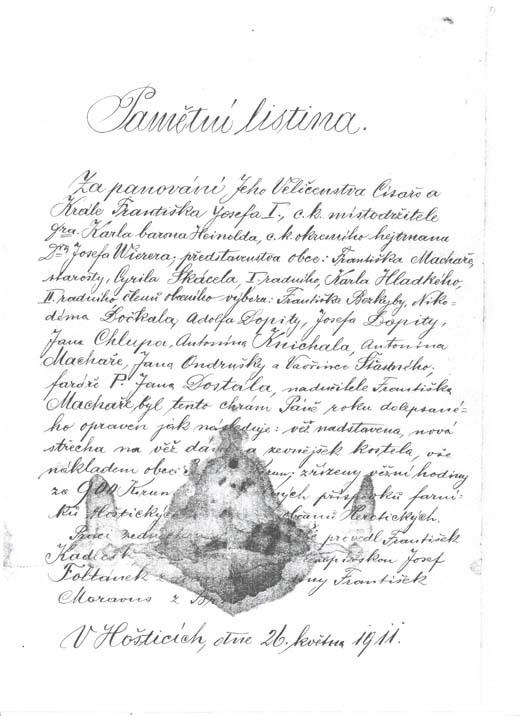 Pamětní listina.
Za panování Jeho Veličenstva Císaře a
Krále Františka Josefa I., c.k. místodržitele
Karla barona Heinolda, c.k. okresního hejtmana
Josefa Wierera; představenstva obce: Františka Machaře,
starosty, Cyrila Skácela, I. radního, Karla Hladkého,
II. radního členů obecního výboru: Františka Berkyby, Niko-
déma Dočkala, Adolfa Dopity, Josefa Dopity,
Jana Chlupa, Antonína Knichala, Antonína
Machaře, Jana Ondrušky a Vavřince Šťastného,
faráře P. Jana Dostála, nadučitele Františka
Machaře, byl tento chrám Páně roku dolepsané-
ho opraven jak následuje: věž nadstavena, nová
střecha na věž dána a zevnějšek kostela, vše
nákladem obce zřízeny věžní hodiny
za 900 Korun příspěvků farní-
ků Hoštických občanů Herotických.
Práci provedl František
Kadle Josef
Foltánek z František
Moravus z
V Hošticích, dne 26. května 1911.